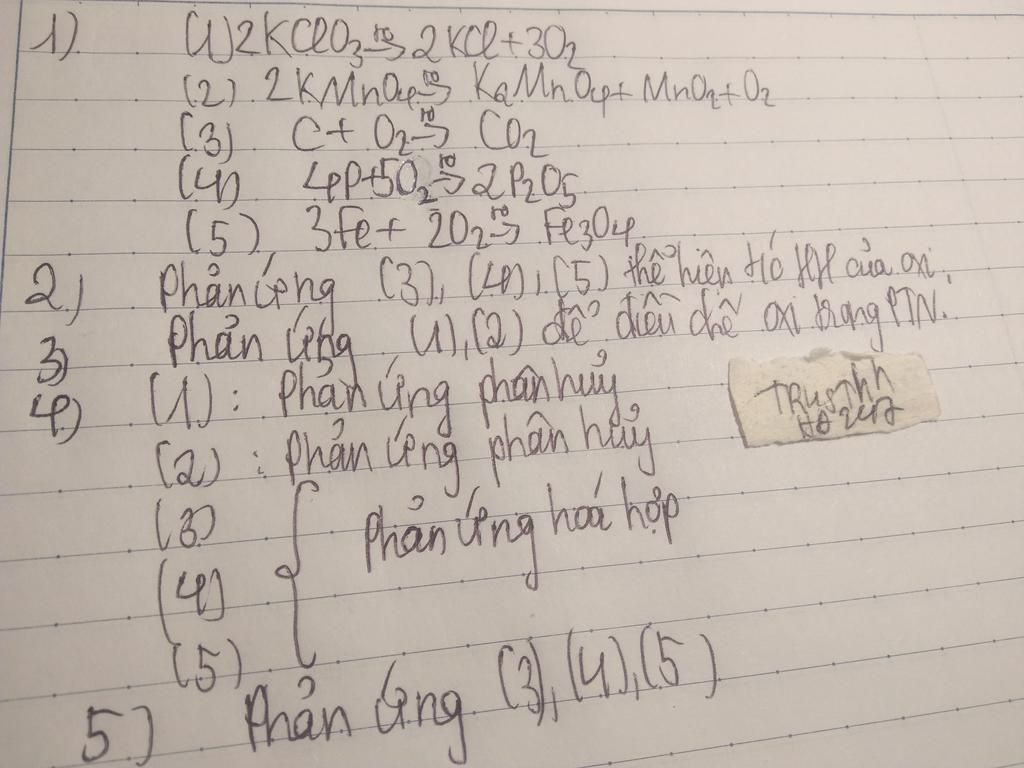 1) (1) 2KClO3 t°→ 2KCl + 3O2
(2) 2KMnO4 t°→ K2MnO4 + MnO2 + O2
(3) C + O2 t°→ CO2
(4) 4P + 5O2 t°→ 2P2O5
(5) 3Fe + 2O2 t°→ Fe3O4
2) Phản ứng (3), (4), (5) thể hiện t/c HH của oxi.
3) Phản ứng (1), (2) để điều chế oxi trong PTN.
4) (1) : Phản ứng phân hủy
(2) : Phản ứng phân hủy
(3)
Phản ứng hoá hợp
(4)
(5)
5) Phản ứng (3), (4), (5)